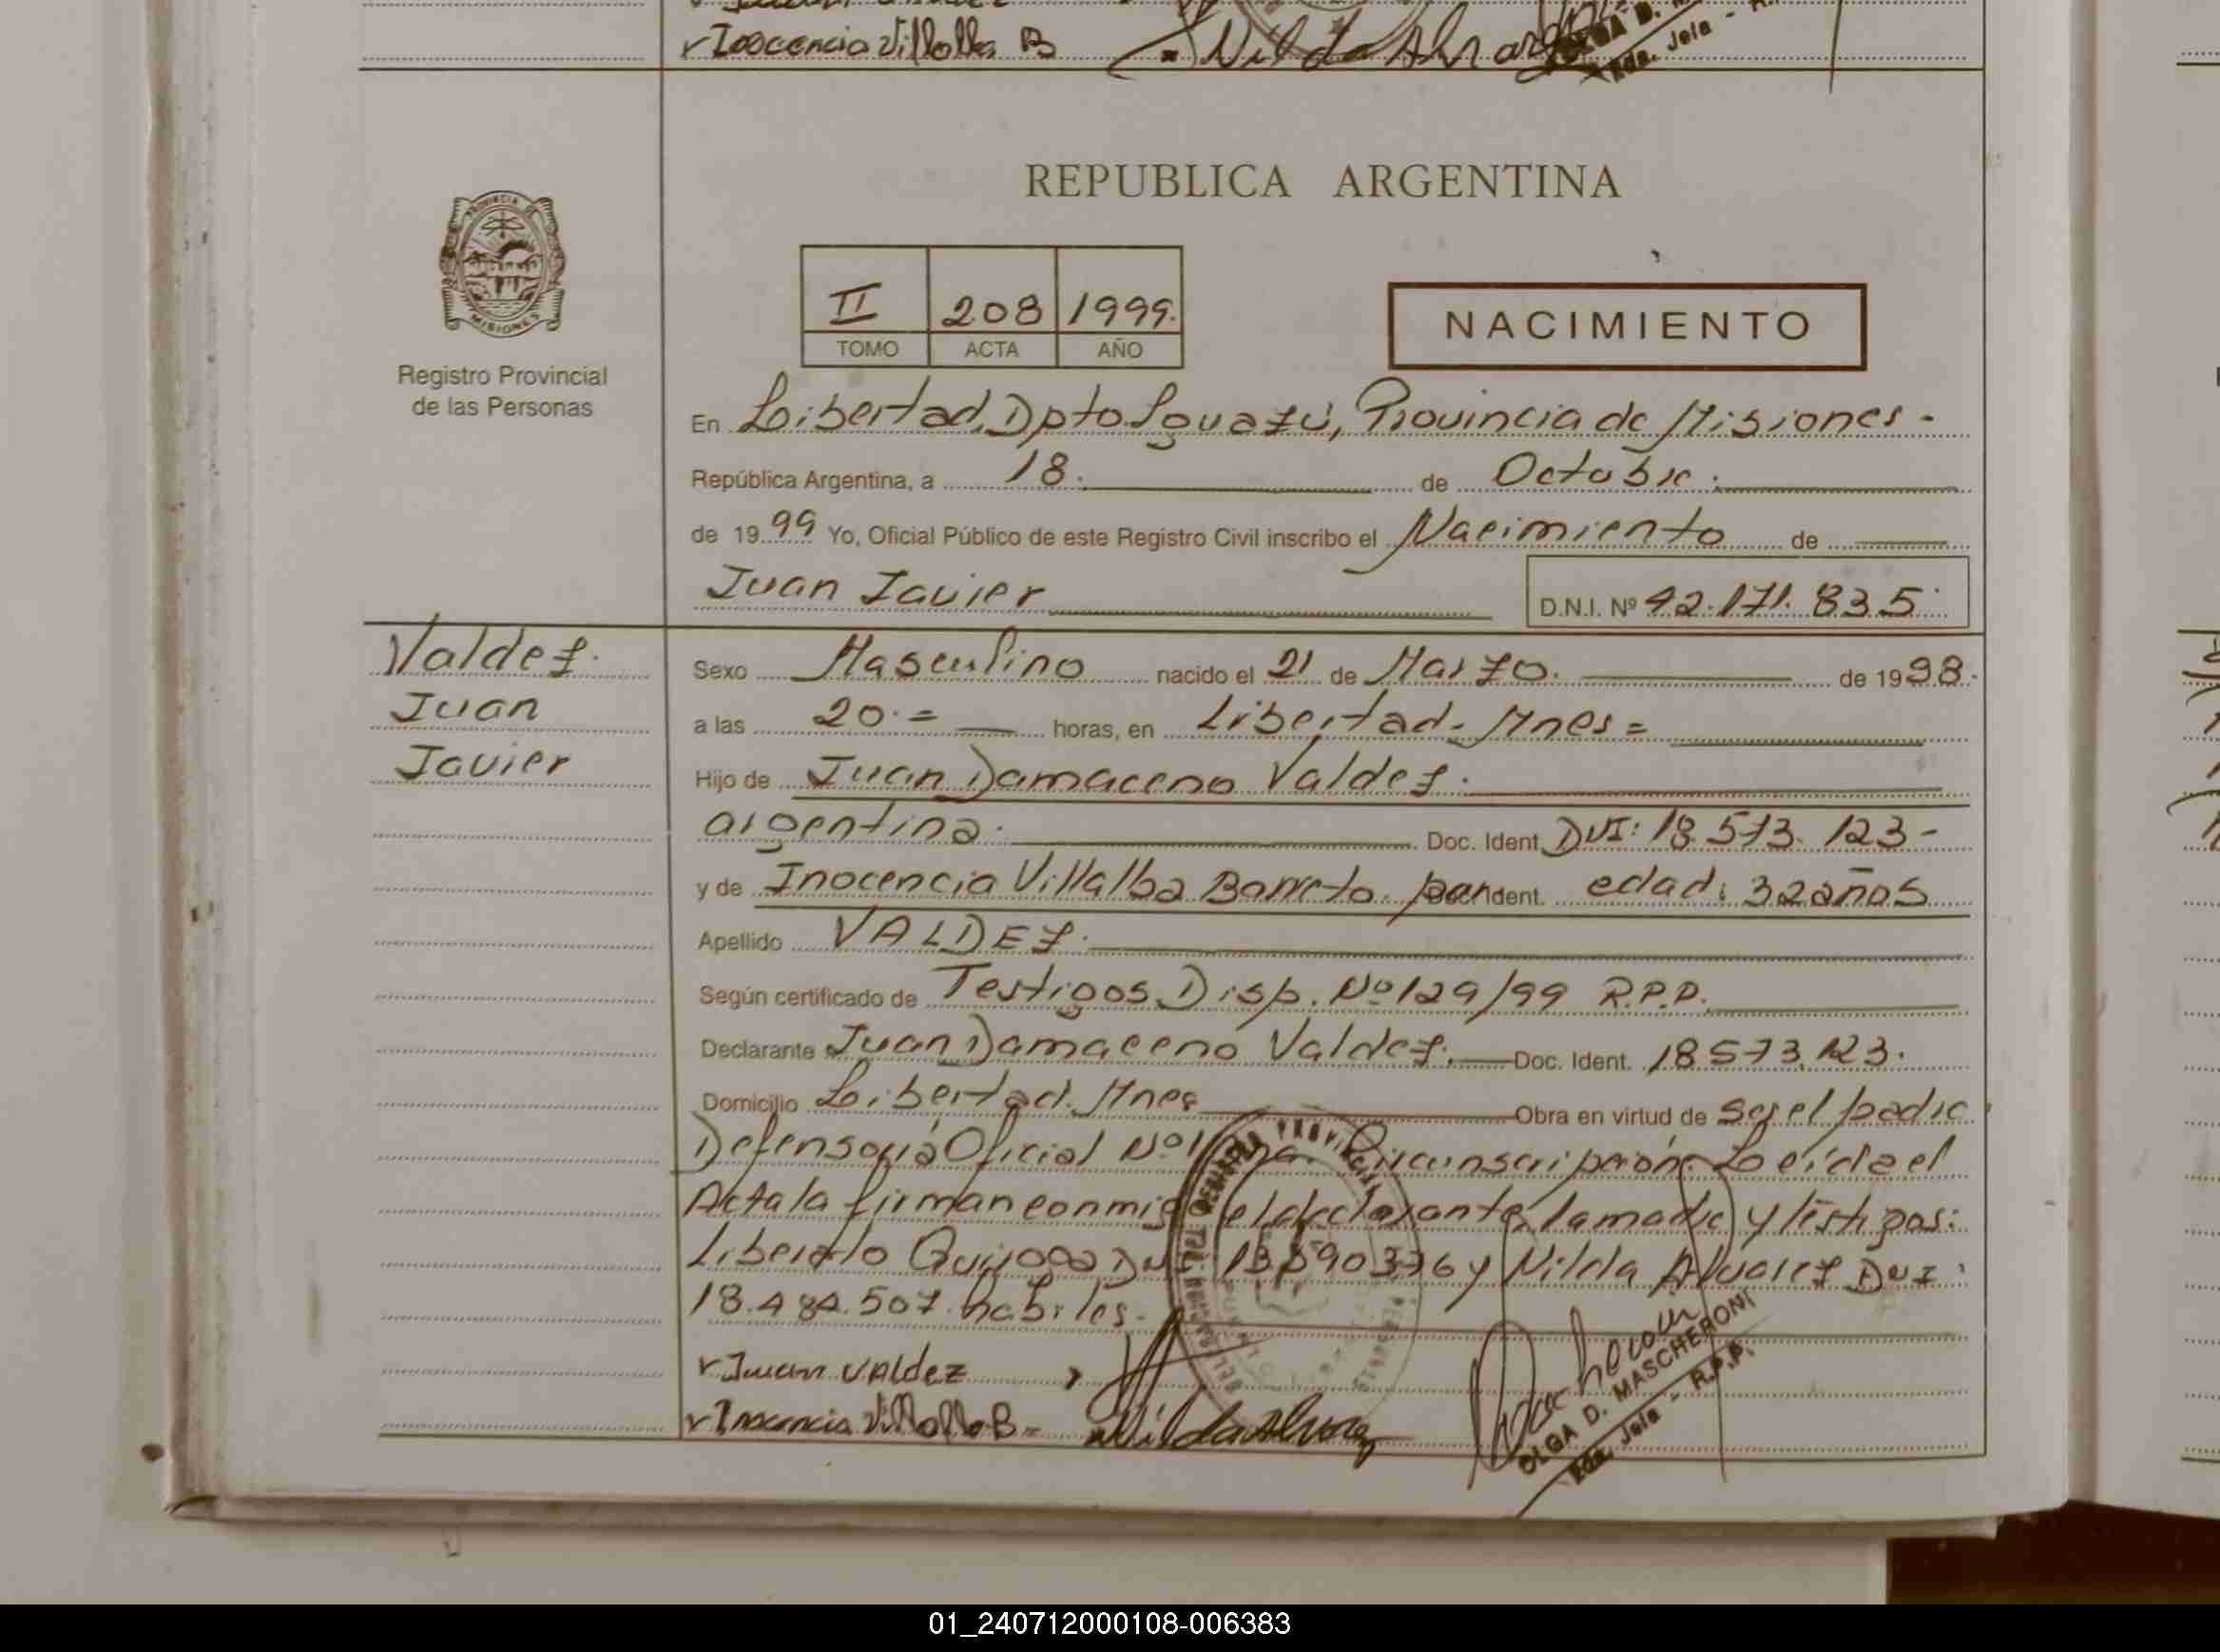 Inocencia Villalba B Nilda Alvarez
Jefa - R.
REPUBLICA ARGENTINA
PROVINCIA DE
MISIONES
Registro Provincial
de las Personas
II 208 1999.
TOMO ACTA AÑO
NACIMIENTO
En Libertad, Dpto Iguazú, Provincia de Misiones -
República Argentina, a 18. de Octubre.
de 1999 Yo, Oficial Público de este Registro Civil inscribo el Nacimiento de
Juan Javier D.N.I. Nº 42.171.835
Valdez.
Juan
Javier
Sexo Masculino nacido el 21 de Marzo. de 1998.
a las 20.= horas, en Libertad - Mnes=
Hijo de Juan Damaceno Valdez.
argentina. Doc. Ident. DNI: 18.573.123-
y de Inocencia Villalba Barreto. par Ident. edad: 32 años
Apellido VALDEZ.
Según certificado de Testigos Disp. Nº 129/99 R.P.P.
Declarante Juan Damaceno Valdez. Doc. Ident. 18573.123.
Domicilio Libertad. Mnes Obra en virtud de ser el padre
Defensoría Oficial Nº 1 Circunscripción. Leída el
Acta la firman conmigo el declarante, la madre y testigos:
Liberato Quiroga DNI 13890376 y Nilda Alvarez DNI:
18.484.507. habiles.-
Juan VALdEZ
Inocencia Villalba B- Nilda Alvarez
OLGA D. MASCHERONI
Eda. Jefa - R.P.P.
01_240712000108-006383